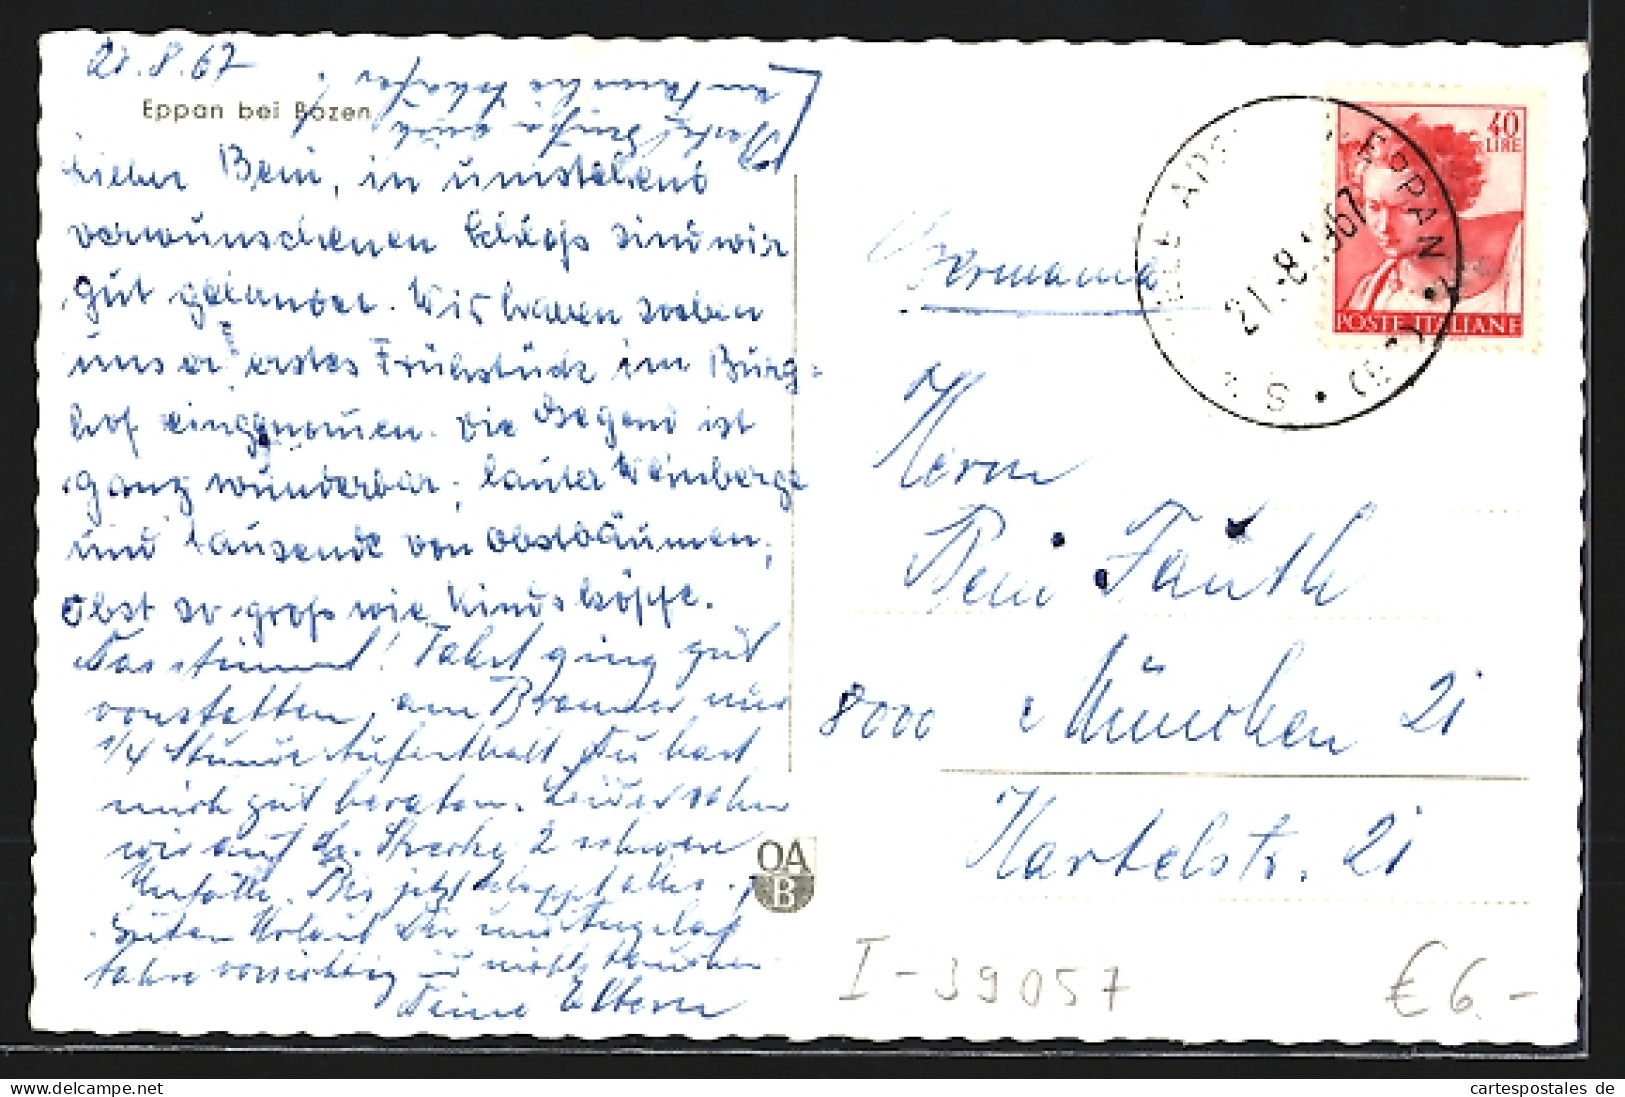 21.8.67
Eppan bei Bozen
Lieber Beni, in umstehend
verwunschenen Schloss sind wir
gut gelandet. Wir haben soeben
unser erstes Frühstück im Burg=
hof eingenommen. Die Gegend ist
ganz wunderbar, lauter Weinberge
und tausende von Obstbäumen,
Obst so gross wie Kindsköpfe.
Das stimmt! Fahrt ging gut
vonstatten, am Brenner nur
1/4 Stunde Aufenthalt. Du hast
mich gut beraten. Leider sahen
wir auf der Strecke 2 schwere
Unfälle. Bis jetzt klappt alles.
Guten Urlaub Dir
fahre vorsichtig
Deine Eltern
Germania
40
LIRE
POSTE ITALIANE
EPPAN
21.-8.1967
Herrn
Beni Fauth
8000 München 21
Hartelstr. 21
QA
B
I-39057
€ 6.-
www.cartespostales.de
cartespostales de